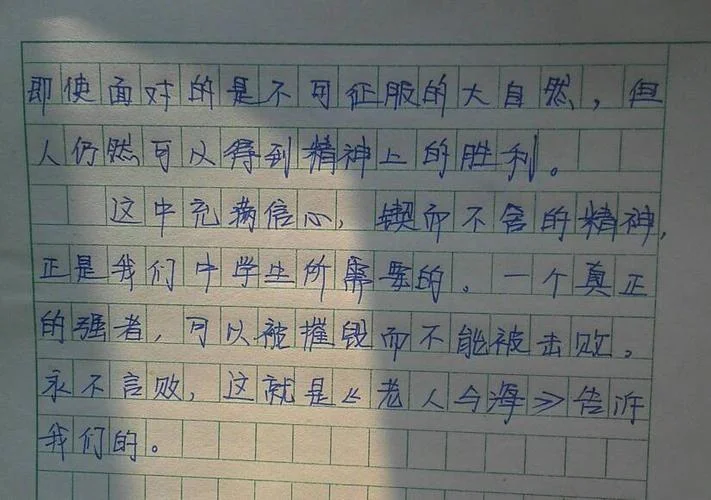 即使面对的是不可征服的大自然，但
人仍然可以得到精神上的胜利。
这中充满信心，锲而不舍的精神，
正是我们中学生所需要的。一个真正
的强者，可以被摧毁而不能被击败。
永不言败，这就是《老人与海》告诉
我们的。